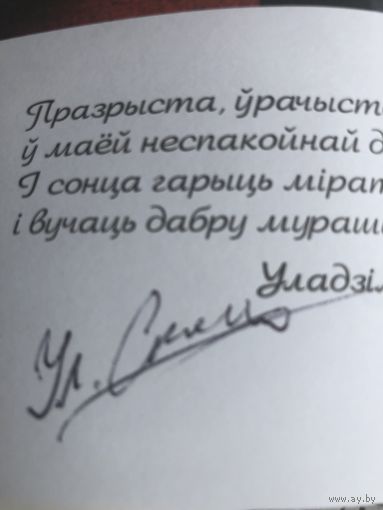 Празрыста, ўрачыст
ў маёй неспакойнай д
І сонца гарыць мірат
і вучаць дабру мураш
Уладзі
Ул.
www.ay.by